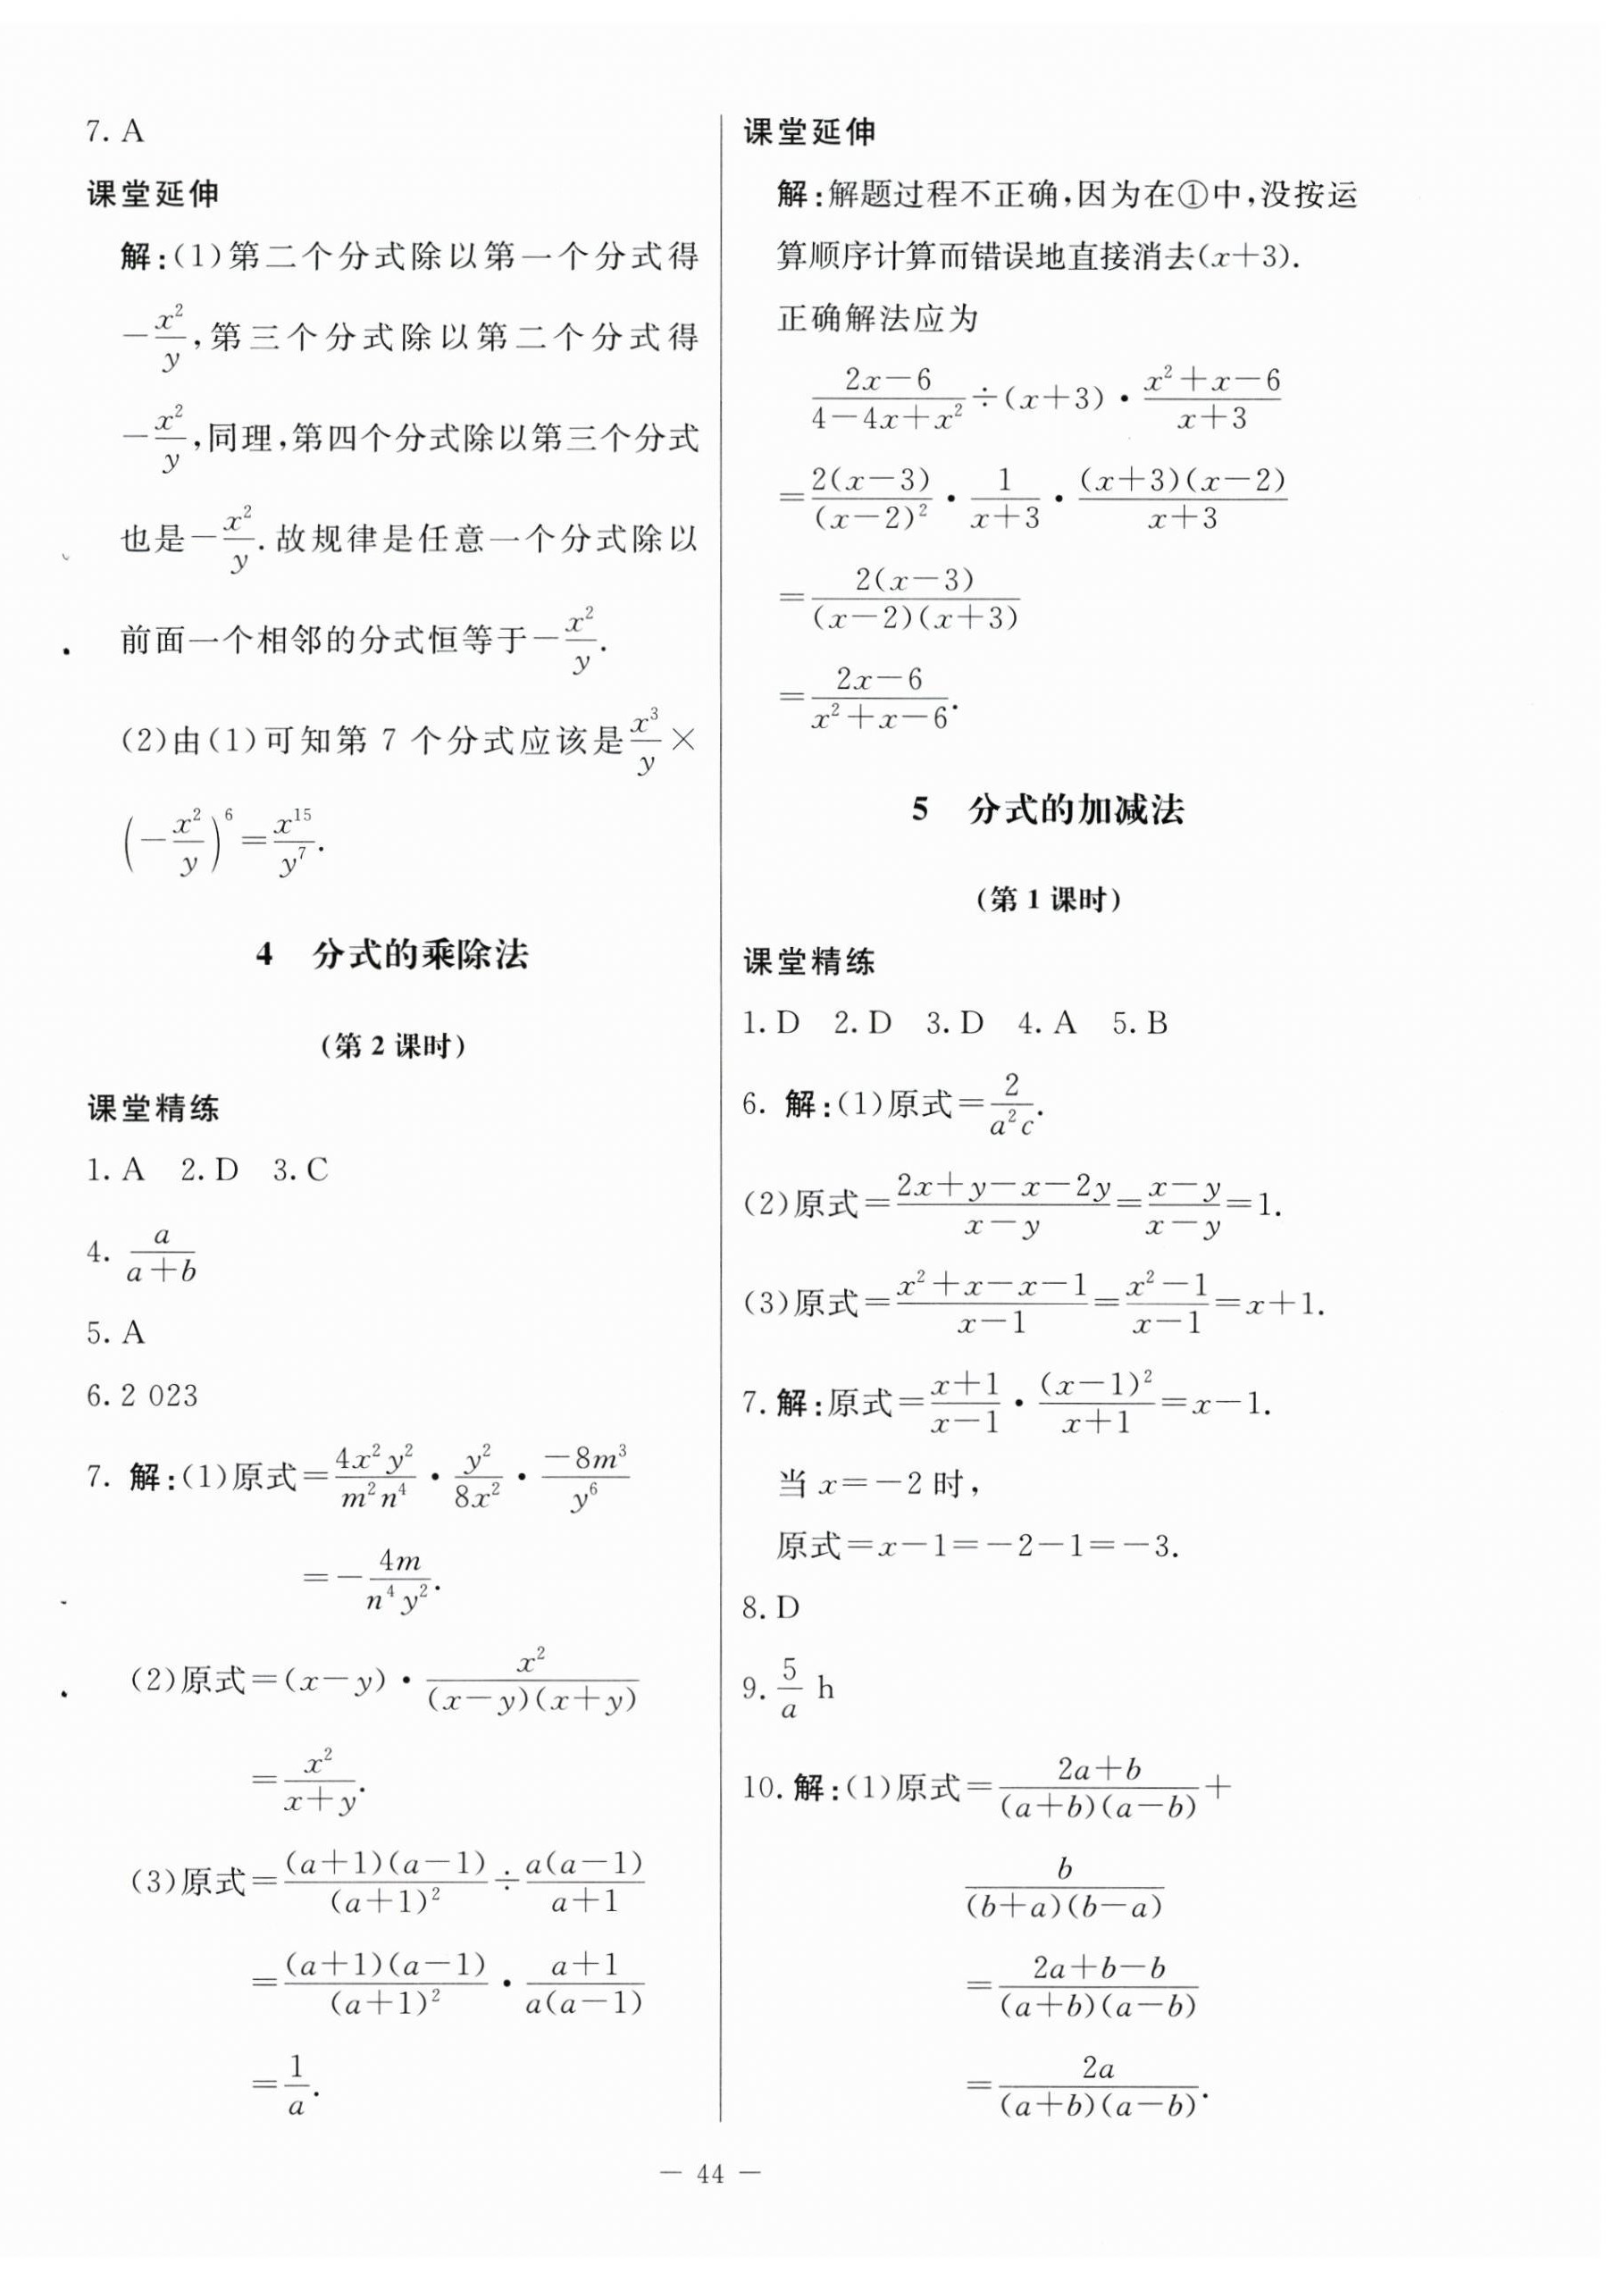 7. A
课堂延伸
解:(1)第二个分式除以第一个分式得
$-\frac{x^2}{y}$,第三个分式除以第二个分式得
$-\frac{x^2}{y}$,同理,第四个分式除以第三个分式
也是$-\frac{x^2}{y}$.故规律是任意一个分式除以
前面一个相邻的分式恒等于$-\frac{x^2}{y}$.
(2)由(1)可知第 7 个分式应该是$\frac{x^3}{y}×$
$\left(-\frac{x^2}{y}\right)^6=\frac{x^{15}}{y^7}$.
4 分式的乘除法
(第 2 课时)
课堂精练
1. A 2. D 3. C
4. $\frac{a}{a+b}$
5. A
6. 2 023
7. 解:(1)原式$=\frac{4x^2y^2}{m^2n^4}·\frac{y^2}{8x^2}·\frac{-8m^3}{y^6}$
$=-\frac{4m}{n^4y^2}$.
(2)原式$=(x-y)·\frac{x^2}{(x-y)(x+y)}$
$=\frac{x^2}{x+y}$.
(3)原式$=\frac{(a+1)(a-1)}{(a+1)^2}÷\frac{a(a-1)}{a+1}$
$=\frac{(a+1)(a-1)}{(a+1)^2}·\frac{a+1}{a(a-1)}$
$=\frac{1}{a}$.
课堂延伸
解:解题过程不正确,因为在①中,没按运
算顺序计算而错误地直接消去(x+3).
正确解法应为
$\frac{2x-6}{4-4x+x^2}÷(x+3)·\frac{x^2+x-6}{x+3}$
$=\frac{2(x-3)}{(x-2)^2}·\frac{1}{x+3}·\frac{(x+3)(x-2)}{x+3}$
$=\frac{2(x-3)}{(x-2)(x+3)}$
$=\frac{2x-6}{x^2+x-6}$.
5 分式的加减法
(第 1 课时)
课堂精练
1. D 2. D 3. D 4. A 5. B
6. 解:(1)原式$=\frac{2}{a^2c}$.
(2)原式$=\frac{2x+y-x-2y}{x-y}=\frac{x-y}{x-y}=1$.
(3)原式$=\frac{x^2+x-x-1}{x-1}=\frac{x^2-1}{x-1}=x+1$.
7. 解:原式$=\frac{x+1}{x-1}·\frac{(x-1)^2}{x+1}=x-1$.
当 x=-2 时,
原式=x-1=-2-1=-3.
8. D
9. $\frac{5}{a}$ h
10. 解:(1)原式$=\frac{2a+b}{(a+b)(a-b)}+$
$\frac{b}{(b+a)(b-a)}$
$=\frac{2a+b-b}{(a+b)(a-b)}$
$=\frac{2a}{(a+b)(a-b)}$.
— 44 —